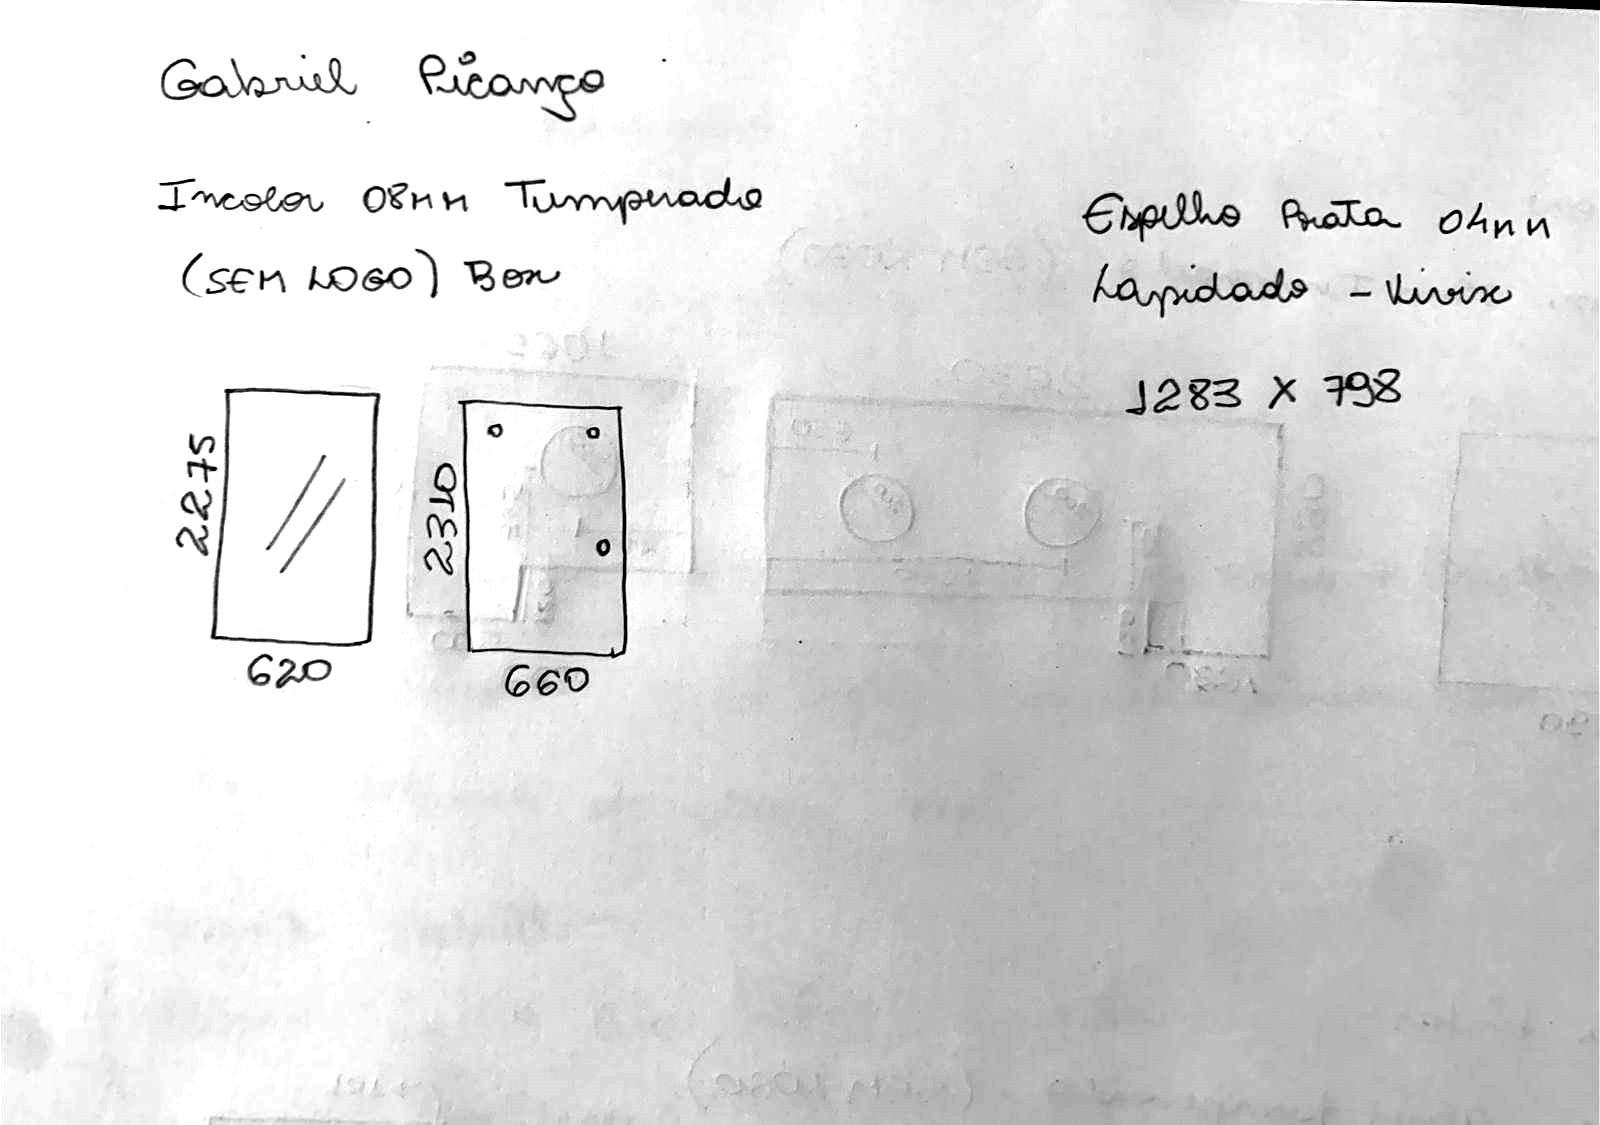 Gabriel Picanço
Incolor 08mm Temperado
(SEM LOGO) Box
2275
620
2310
660
Espelho Prata 04mm
Lapidado - Vivix
1283 X 798